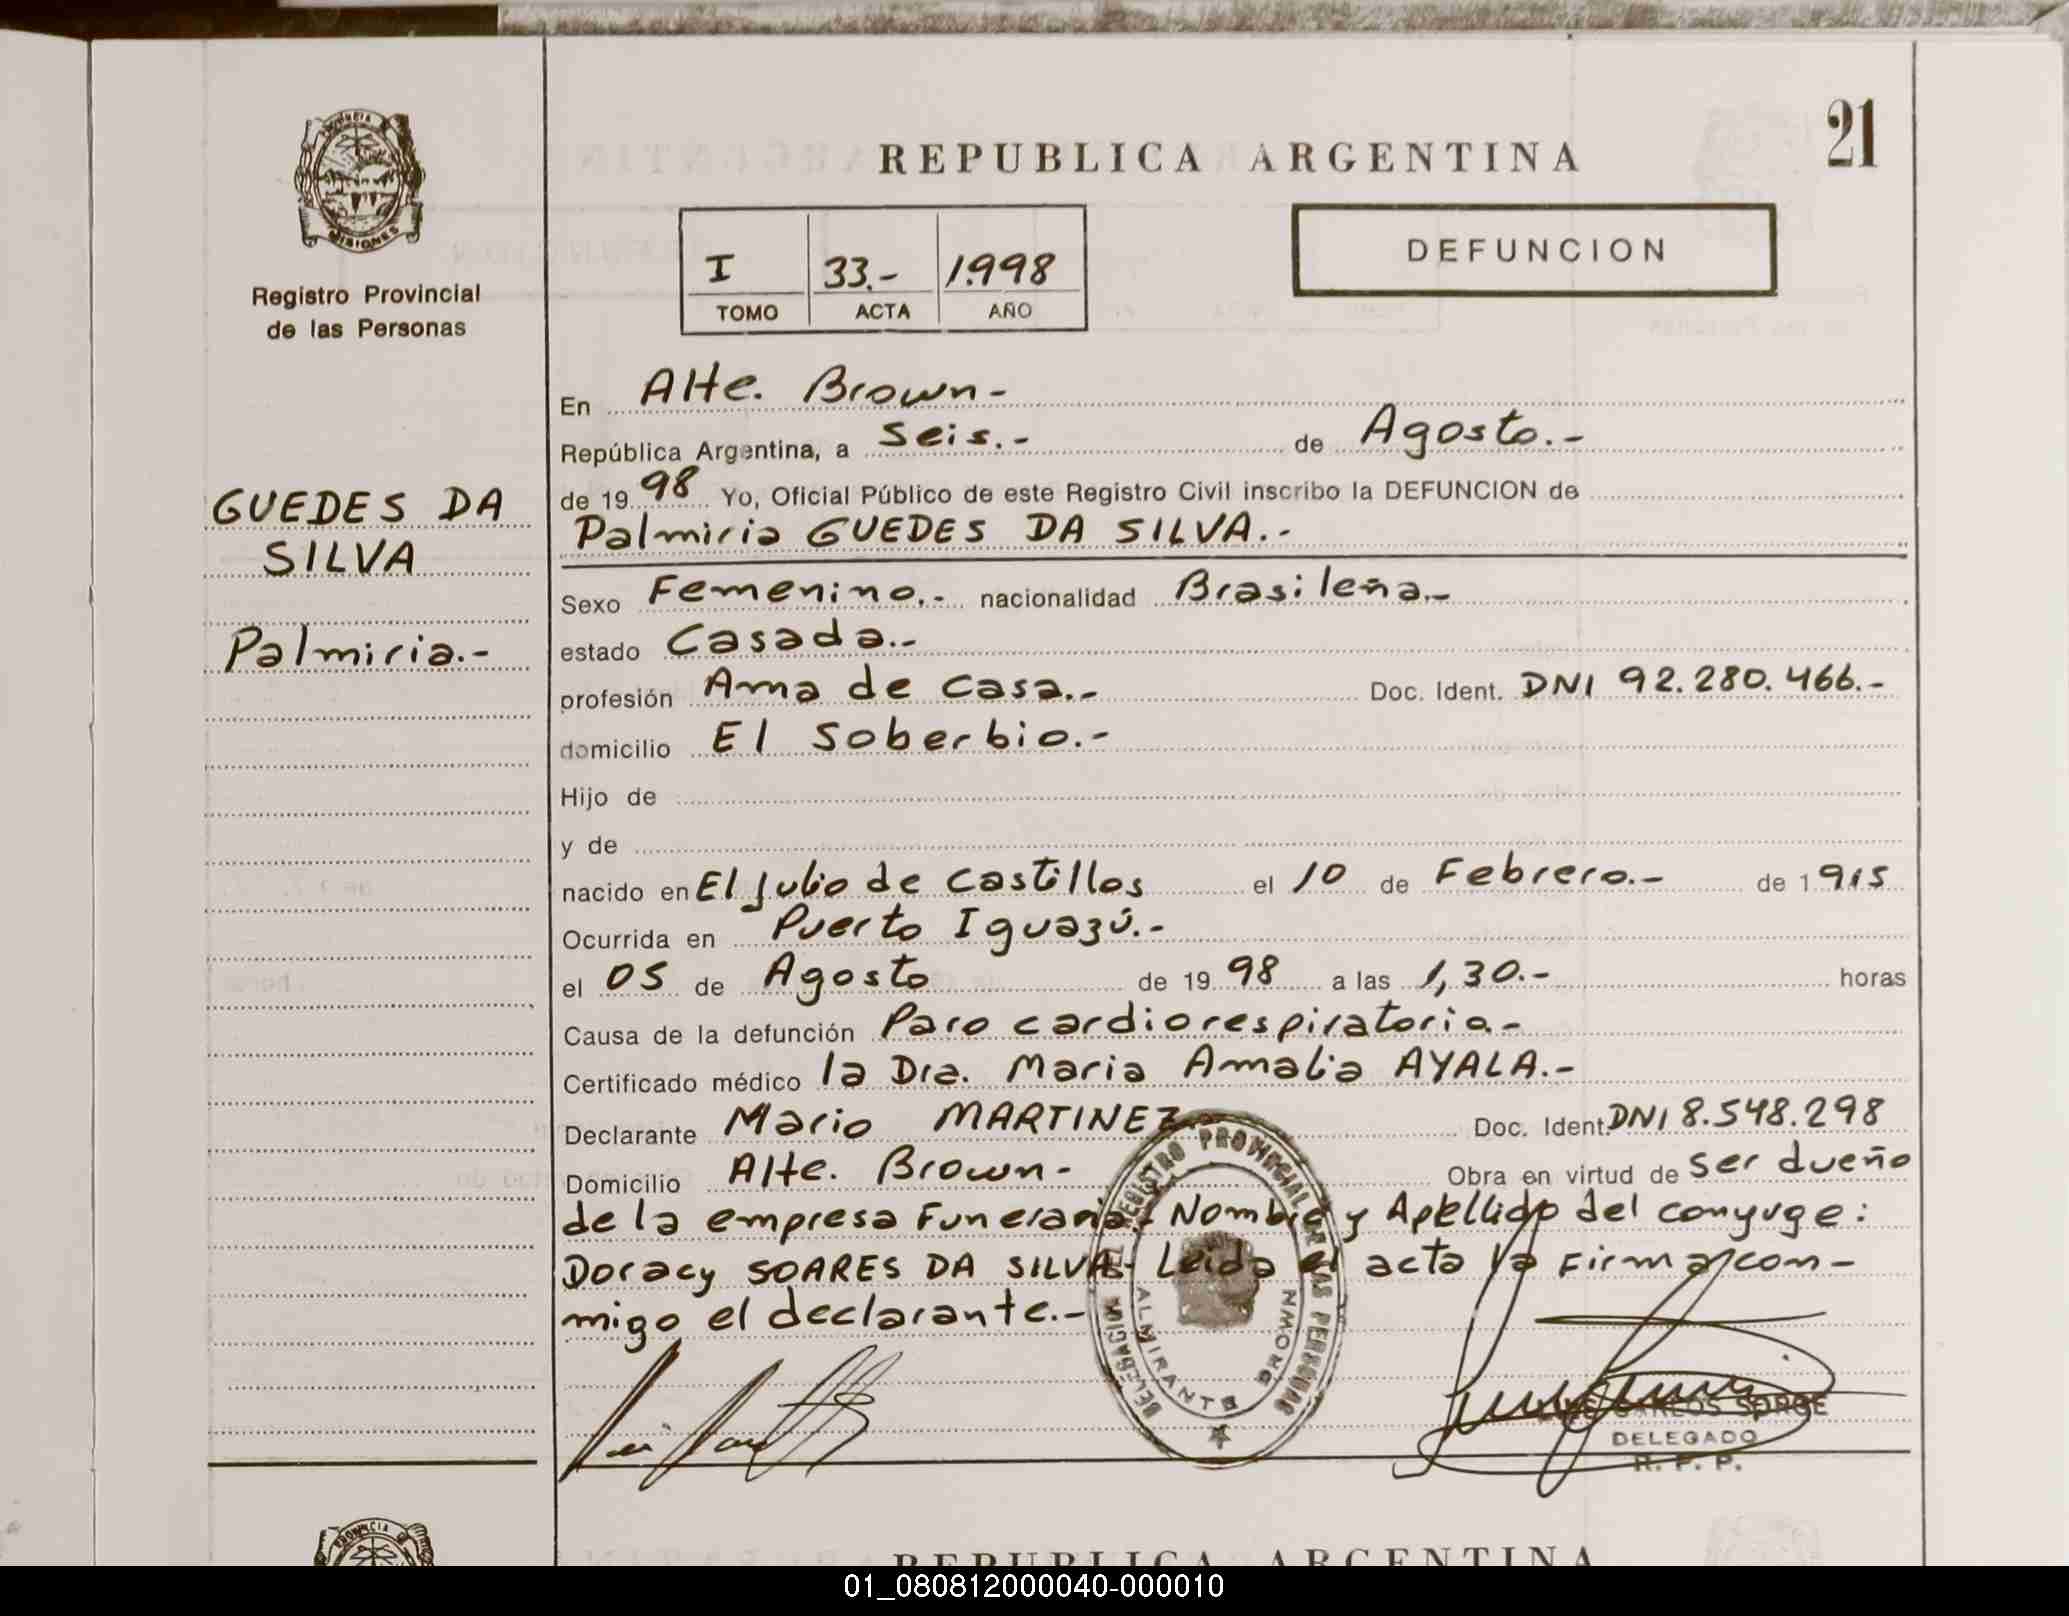 REPUBLICA ARGENTINA
21
PROVINCIA DE
MISIONES
Registro Provincial
de las Personas
I 33.- 1.998
TOMO ACTA AÑO
DEFUNCION
GUEDES DA
SILVA
Palmiria.-
En Alte. Brown-
República Argentina, a Seis.- de Agosto.-
de 19 98 Yo, Oficial Público de este Registro Civil inscribo la DEFUNCION de
Palmiria GUEDES DA SILVA.-
Sexo Femenino.- nacionalidad Brasileña.-
estado Casada.-
profesión Ama de casa.- Doc. Ident. DNI 92.280.466.-
domicilio El Soberbio.-
Hijo de
y de
nacido en El Julio de Castillos el 10 de Febrero.- de 1915
Ocurrida en Puerto Iguazú.-
el 05 de Agosto de 19 98 a las 1,30.- horas
Causa de la defunción Paro cardiorespiratorio.-
Certificado médico la Dra. Maria Amalia AYALA.-
Declarante Mario MARTINEZ Doc. Ident. DNI 8.548.298
Domicilio Alte. Brown- Obra en virtud de ser dueño
de la empresa Funeraria.- Nombre y Apellido del conyuge:
Doracy SOARES DA SILVA.- Leida el acta la Firma con-
migo el declarante.-
DELEGACION DEL REGISTRO PROVINCIAL DE LAS PERSONAS
ALMIRANTE BROWN
CARLOS SORGE
DELEGADO
R. P. P.
PROVINCIA DE
REPUBLICA ARGENTINA
01_080812000040-000010